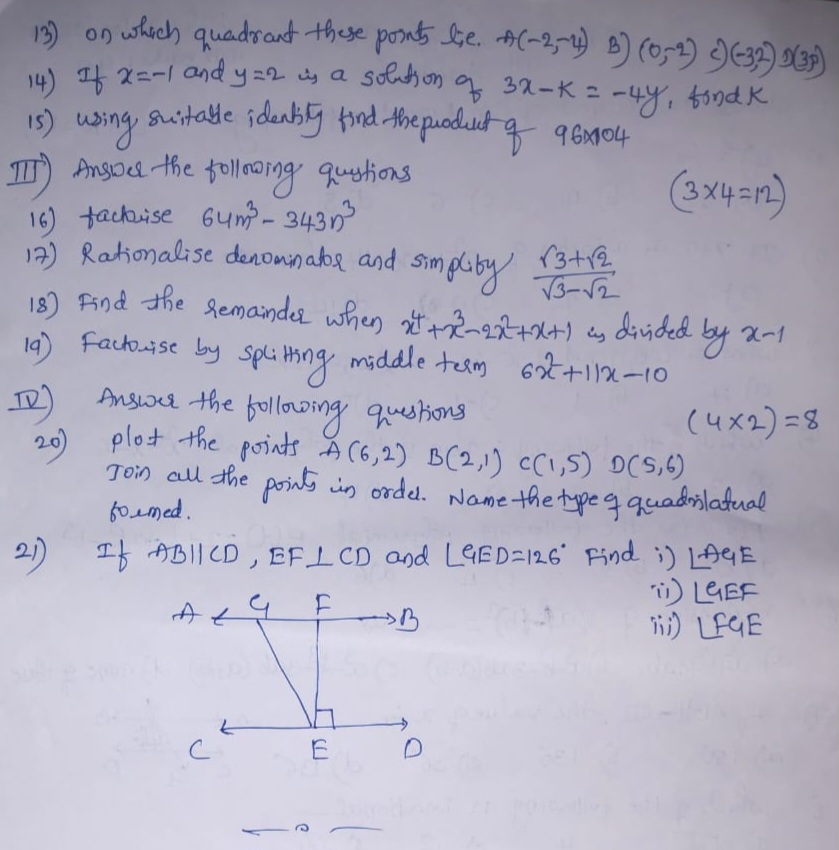 13) on which quadrant these points lie. A(-2,-4) B) (0,-2) C)(-3,2) D(3,
14) If x=-1 and y=2 is a solution of 3x-K = -4y, find K
15) using suitable identity find the product of 96x104
III) Answer the following questions (3x4=12)
16) factorise 64m³ - 343n³
17) Rationalise denominator and simplify √3+√2 / √3-√2
18) Find the remainder when x⁴+x³-2x²+x+1 is divided by x-1
19) Factorise by splitting middle term 6x²+11x-10
IV) Answer the following questions (4x2)=8
20) plot the points A(6,2) B(2,1) C(1,5) D(5,6)
Join all the points in order. Name the type of quadrilateral
formed.
21) If AB||CD, EF⊥CD and ∠GED=126° Find i) ∠AGE
ii) ∠GEF
iii) ∠FGE
A G F B
C E D